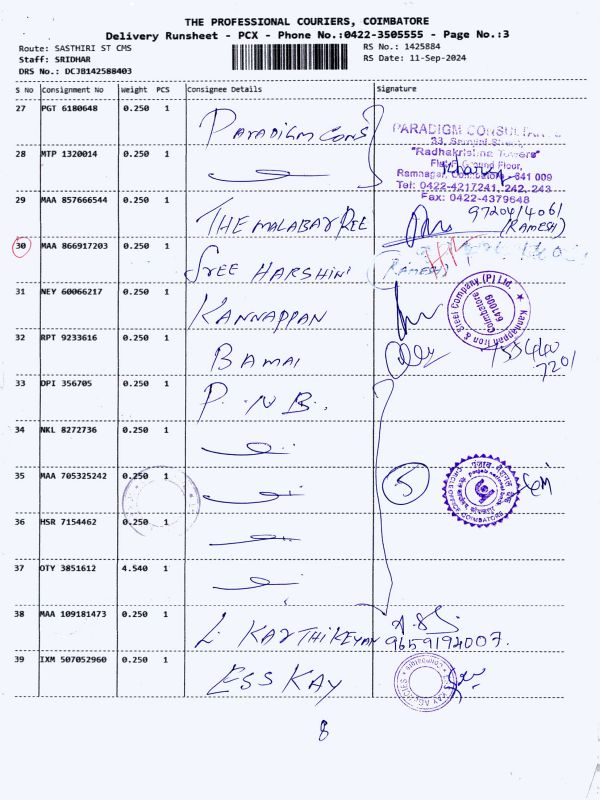 THE PROFESSIONAL COURIERS, COIMBATORE
Delivery Runsheet - PCX - Phone No.:0422-3505555 - Page No.:3
Route: SASTHIRI ST CMS RS No.: 1425884
Staff: SRIDHAR RS Date: 11-Sep-2024
DRS No.: DCJB142588403
S No Consignment No Weight PCS Consignee Details Signature
27 PGT 6180648 0.250 1 PARADIGM CONS
PARADIGM CONSULTANTS
33, Swami Street,
28 MTP 1320014 0.250 1
"Radhakrishna Towers"
Flat F, Ground Floor,
Ramnagar, Coimbatore - 641 009
Tel: 0422-4217241, 242, 243
Fax: 0422-4379648
29 MAA 857666544 0.250 1 THE MALABAR REE 97204/4061
(RAMESH)
30 MAA 866917203 0.250 1 SREE HARSHINI (RAMESH)
31 NEY 60066217 0.250 1 KANNAPPAN
Kannappan Iron & Steel Company (P) Ltd.
Coimbatore
641009
32 RPT 9233616 0.250 1 BAMAI
7201
33 DPI 356705 0.250 1 P. N B.
34 NKL 8272736 0.250 1
35 MAA 705325242 0.250 1 5
पंजाब नैशनल बैंक
Punjab national bank
CIRCLE OFFICE COIMBATORE
36 HSR 7154462 0.250 1
37 OTY 3851612 4.540 1
38 MAA 109181473 0.250 1 L. KARTHIKEYAN 9659194007.
39 IXM 507052960 0.250 1 ESS KAY
ESS KAY AGENCIES
COIMBATORE
8